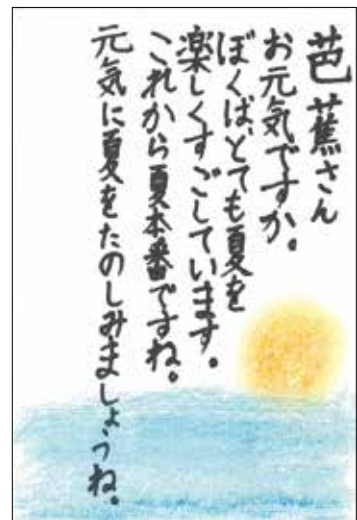 芭蕉さん
お元気ですか。
ぼくは、とても夏を
楽しくすごしています。
これから夏本番ですね。
元気に夏をたのしみましょうね。